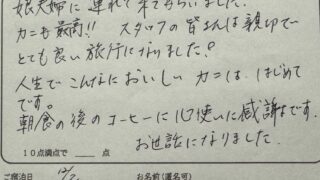 娘夫婦に連れて来てもらいました。
カニも最高!! スタッフの皆さんは親切で
とても良い旅行になりました?
人生でこんなにおいしいカニは、はじめて
です。
朝食の後のコーヒーに心使いに感謝です。
お世話になりました
10点満点で 点
ご宿泊日
お名前(匿名可)